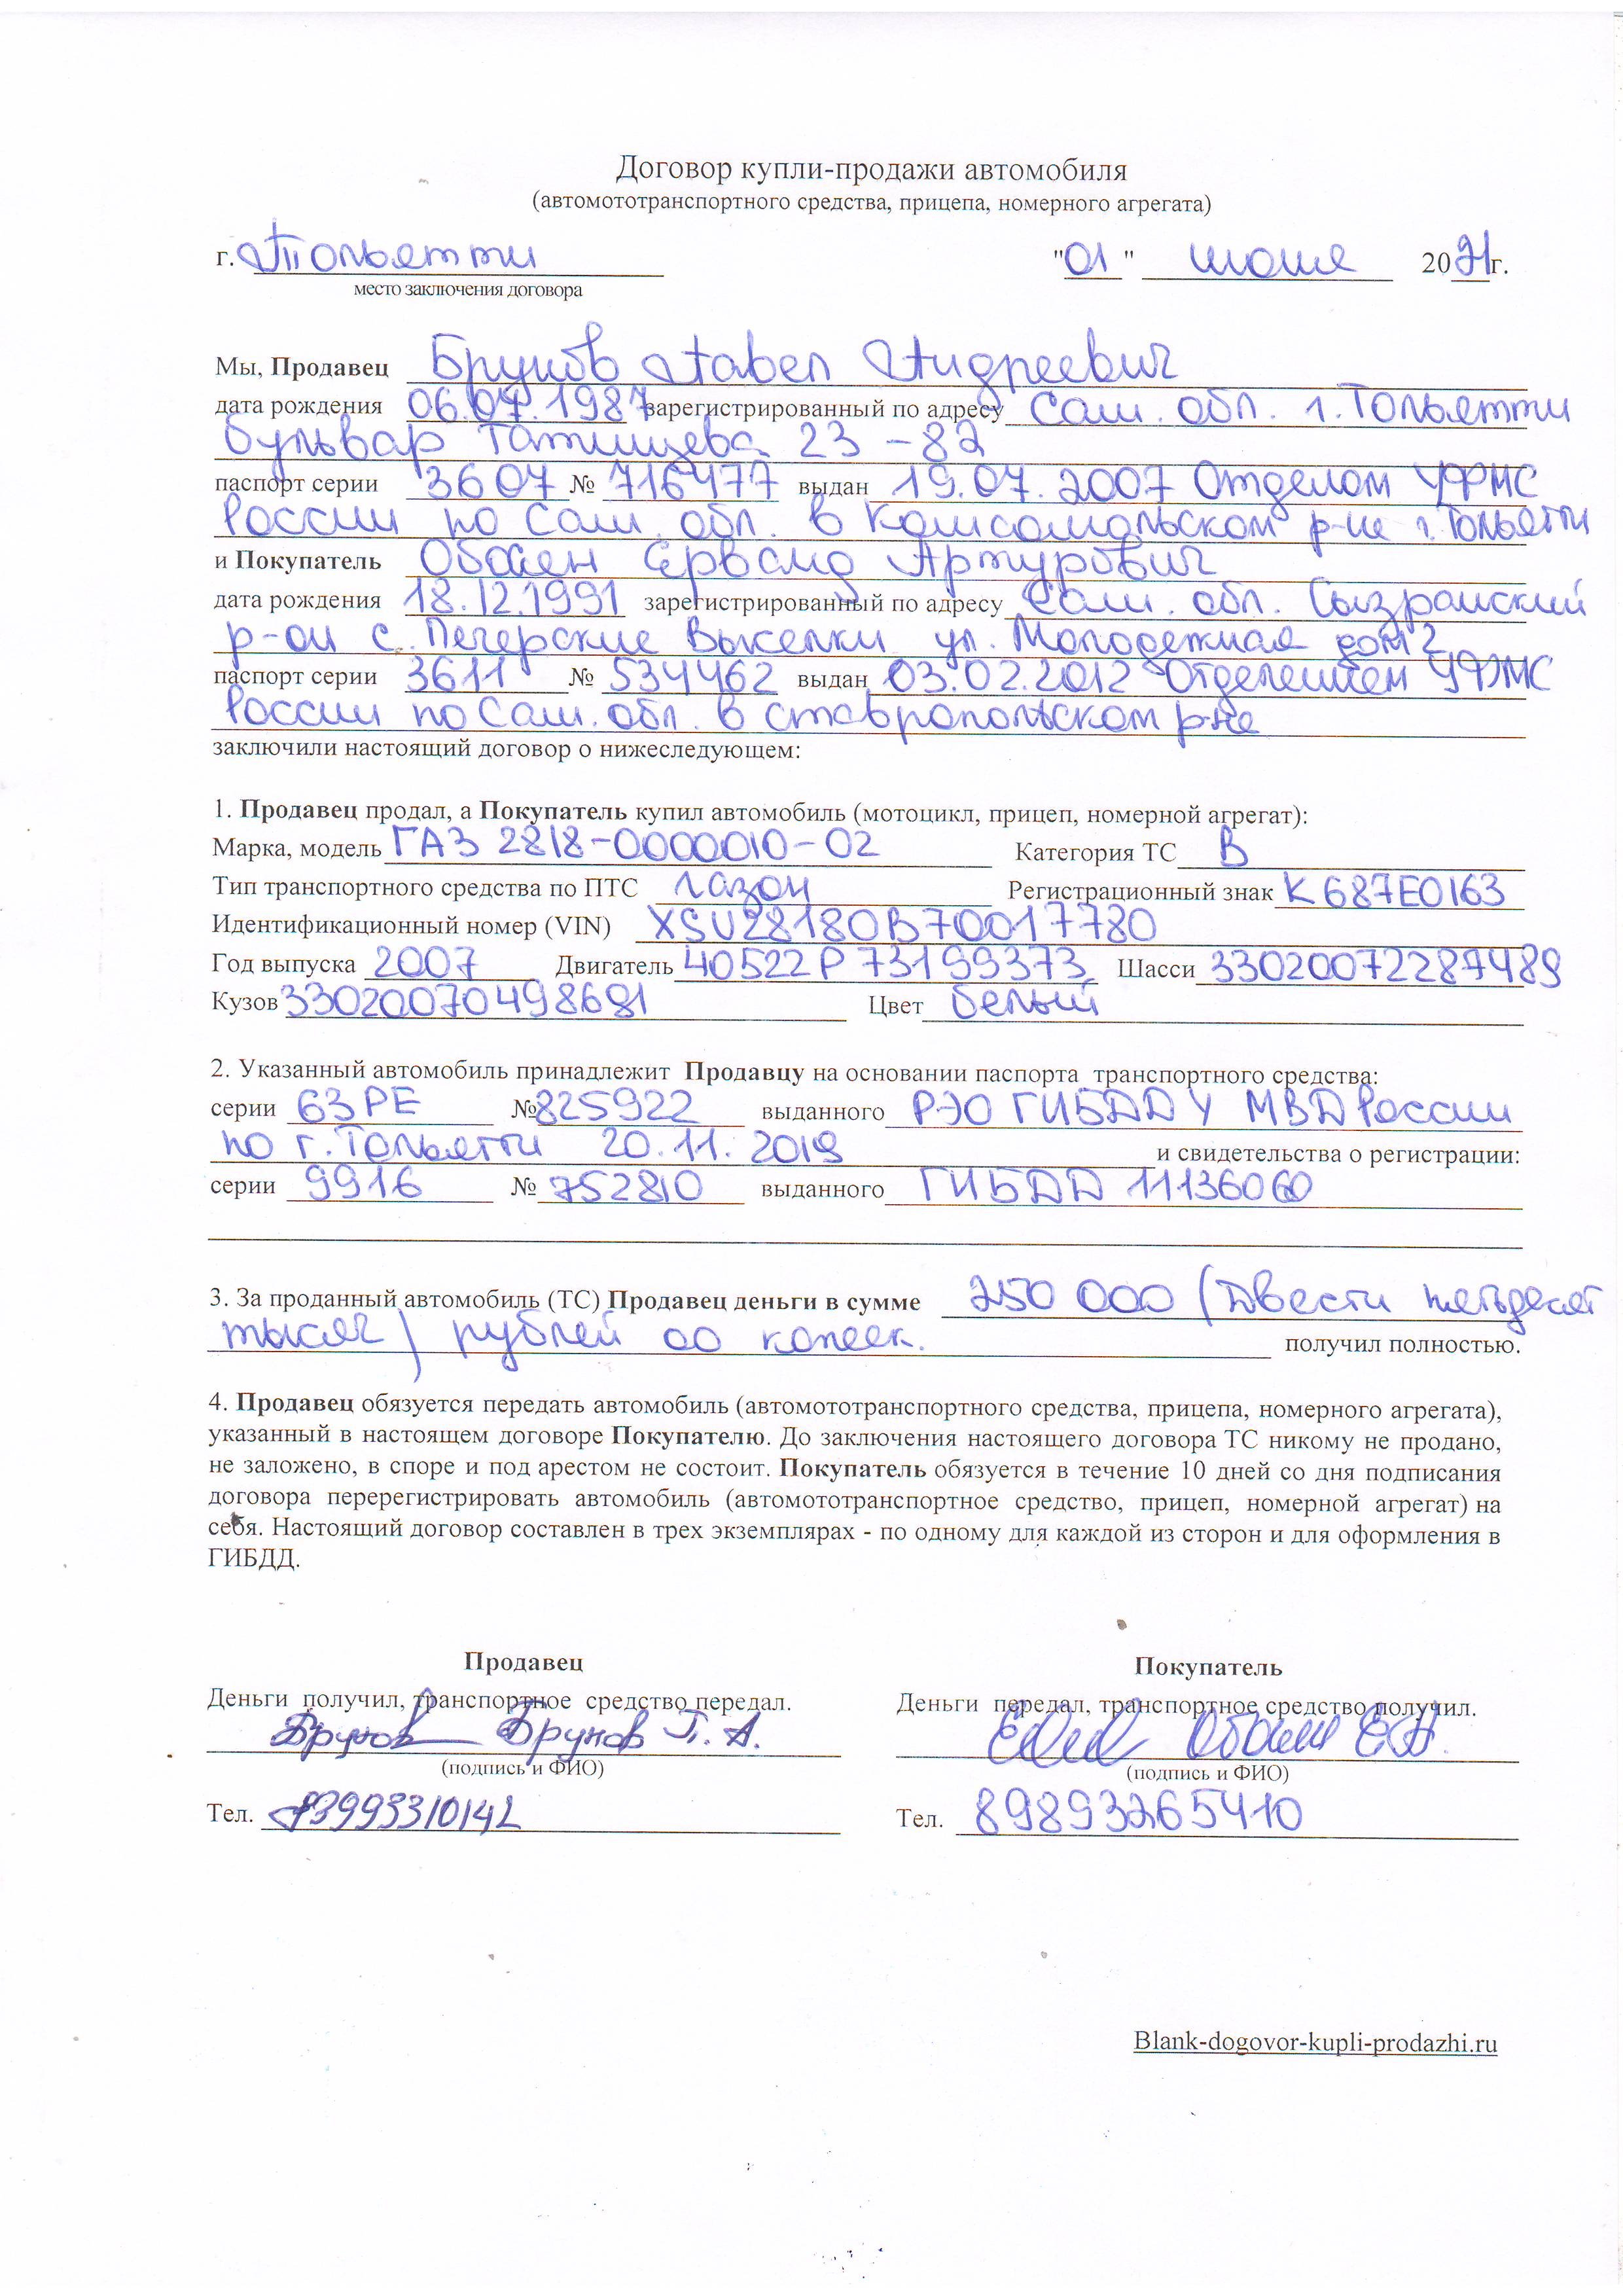 Договор купли-продажи автомобиля
(автомототранспортного средства, прицепа, номерного агрегата)
г. Тольятти "01" июня 2021г.
место заключения договора
Мы, Продавец Брунов Павел Андреевич
дата рождения 06.07.1987 зарегистрированный по адресу Сам. обл. г. Тольятти
бульвар Татищева 23 - 82
паспорт серии 3607 № 716477 выдан 19.07.2007 Отделом УФМС
России по Сам. обл. в Комсомольском р-не г. Тольятти
и Покупатель Артурович
дата рождения 18.12.1991 зарегистрированный по адресу Сам. обл. Сызранский
р-он с. Печерские Выселки ул. Молодежная дом 2
паспорт серии 3611 № 534462 выдан 03.02.2012 Отделением УФМС
России по Сам. обл. в ставропольском р-не
заключили настоящий договор о нижеследующем:
1. Продавец продал, а Покупатель купил автомобиль (мотоцикл, прицеп, номерной агрегат):
Марка, модель ГАЗ 2818-0000010-02 Категория ТС В
Тип транспортного средства по ПТС Регистрационный знак К687ЕО163
Идентификационный номер (VIN) XSU28180B70017780
Год выпуска 2007 Двигатель 40522Р73199373 Шасси 33020072287489
Кузов 33020070498691 Цвет белый
2. Указанный автомобиль принадлежит Продавцу на основании паспорта транспортного средства:
серии 63РЕ №825922 выданного РЭО ГИБДД У МВД России
по г. Тольятти 20.11.2019 и свидетельства о регистрации:
серии 9916 № 752810 выданного ГИБДД 1136060
3. За проданный автомобиль (ТС) Продавец деньги в сумме 250 000 (Двести пятьдесят
тысяч) рублей 00 копеек. получил полностью.
4. Продавец обязуется передать автомобиль (автомототранспортного средства, прицепа, номерного агрегата),
указанный в настоящем договоре Покупателю. До заключения настоящего договора ТС никому не продано,
не заложено, в споре и под арестом не состоит. Покупатель обязуется в течение 10 дней со дня подписания
договора перерегистрировать автомобиль (автомототранспортное средство, прицеп, номерной агрегат) на
себя. Настоящий договор составлен в трех экземплярах - по одному для каждой из сторон и для оформления в
ГИБДД.
Продавец Покупатель
Деньги получил, транспортное средство передал. Деньги передал, транспортное средство получил.
Брунов Брунов П. А.
(подпись и ФИО) (подпись и ФИО)
Тел. Тел. 89893265410
Blank-dogovor-kupli-prodazhi.ru